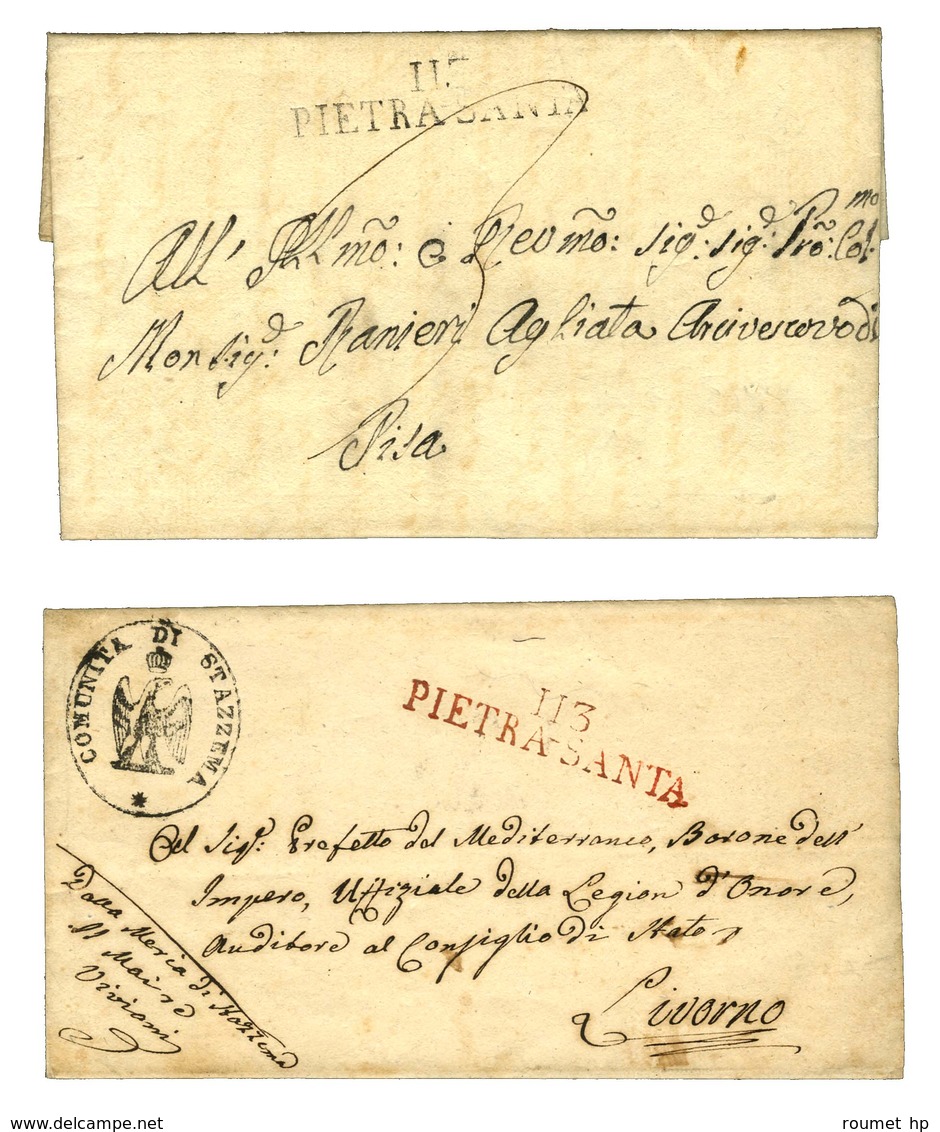 PIETRA-SANTA
All' Illmõ: e Revmõ: Sigᵈ: Sigᵈ: Prõ: Colᵐᵒ
Monsigᵈ: Ranieri Agliata Arcivescovo di
Pisa
COMUNITA DI STAZZEMA
113
PIETRA-SANTA
Al Sigʳ: Prefetto del Mediterraneo, Barone dell'
Impero, Uffiziale della Legion d'Onore,
Auditore al Consiglio di Stato
Livorno
Dalla Meria di Stazzema
Il Maire
Viviani
delcampe.net
roumet hp